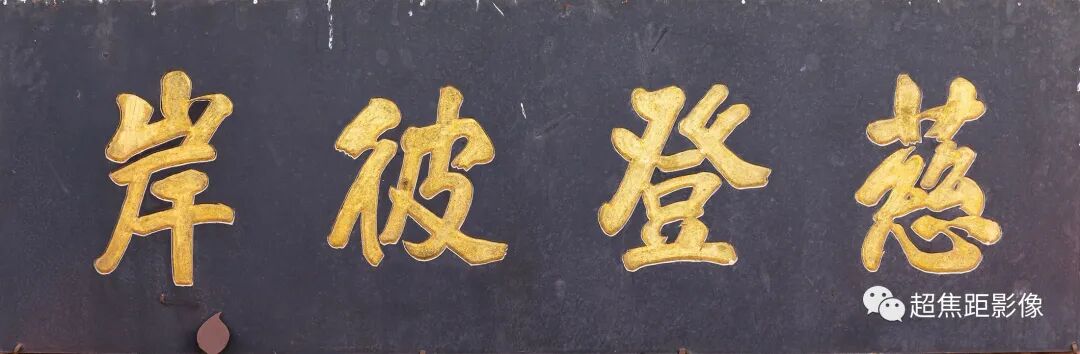 慈登彼岸
超焦距影像